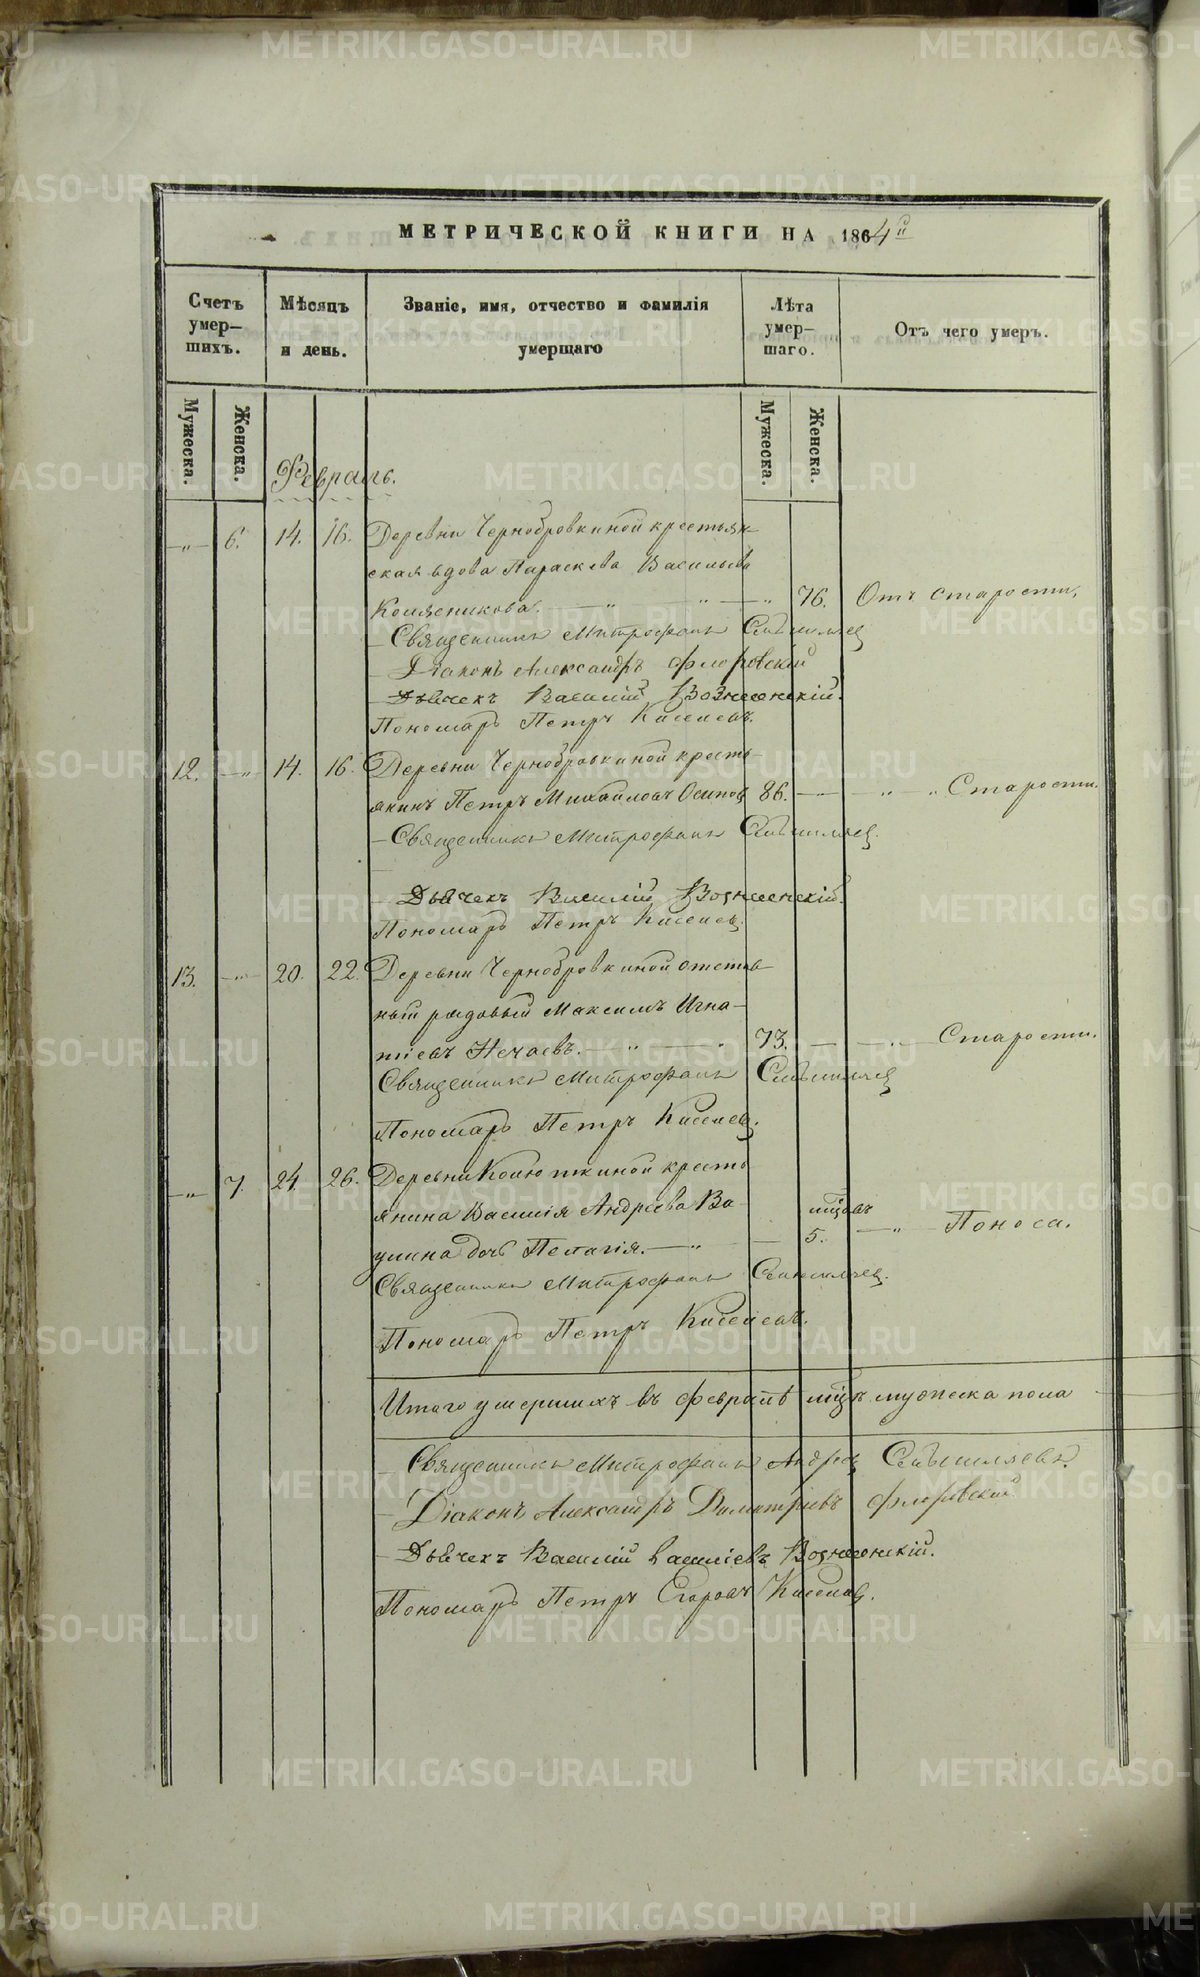 МЕТРИЧЕСКОЙ КНИГИ НА 1864й
Счетъ умер-шихъ.
Мѣсяцъ и день.
Званіе, имя, отчество и фамилія умершаго
Лѣта умер-шаго.
Отъ чего умеръ.
Мужеска.
Женска.
Мужеска.
Женска.
Февраль.
—„— 6. 14. 16. Деревни Чернобровкиной крестьян-
ская вдова Параскева Васильева
76. Отъ старости.
Священникъ Митрофанъ
Діаконъ Александръ Флоровскій
Дьячекъ Василій Вознесенскій.
Пономарь Петръ Киселевъ.
12. —„ 14. 16. Деревни Чернобровкиной кресть-
янинъ Петръ Михайловъ Осиповъ 86. —„— „ „ Старости.
Священникъ Митрофанъ
Дьячекъ Василій Вознесенскій.
Пономарь Петръ Киселевъ
13. —„— 20. 22. Деревни Чернобровкиной отстав-
ный рядовый Максимъ Игна-
тіевъ Нечаевъ. —„— „ 73. — —„— Старости.
Священникъ Митрофанъ
Пономарь Петръ Киселевъ.
—„— 7. 24 26. Деревни Колюткиной кресть-
янина Василія Андреева Ва-
улина дочь Пелагія. —„— — 5. мцовъ —„— Поноса.
Священникъ Митрофанъ
Пономарь Петръ Киселевъ.
Итого умершихъ въ Февралѣ мцѣ мужеска пола
Священникъ Митрофанъ Андреевъ
Діаконъ Александръ Димитріевъ Флоровскій
Дьячекъ Василій Василіевъ Вознесенскій.
Пономарь Петръ Егоровъ Киселевъ.
METRIKI.GASO-URAL.RU